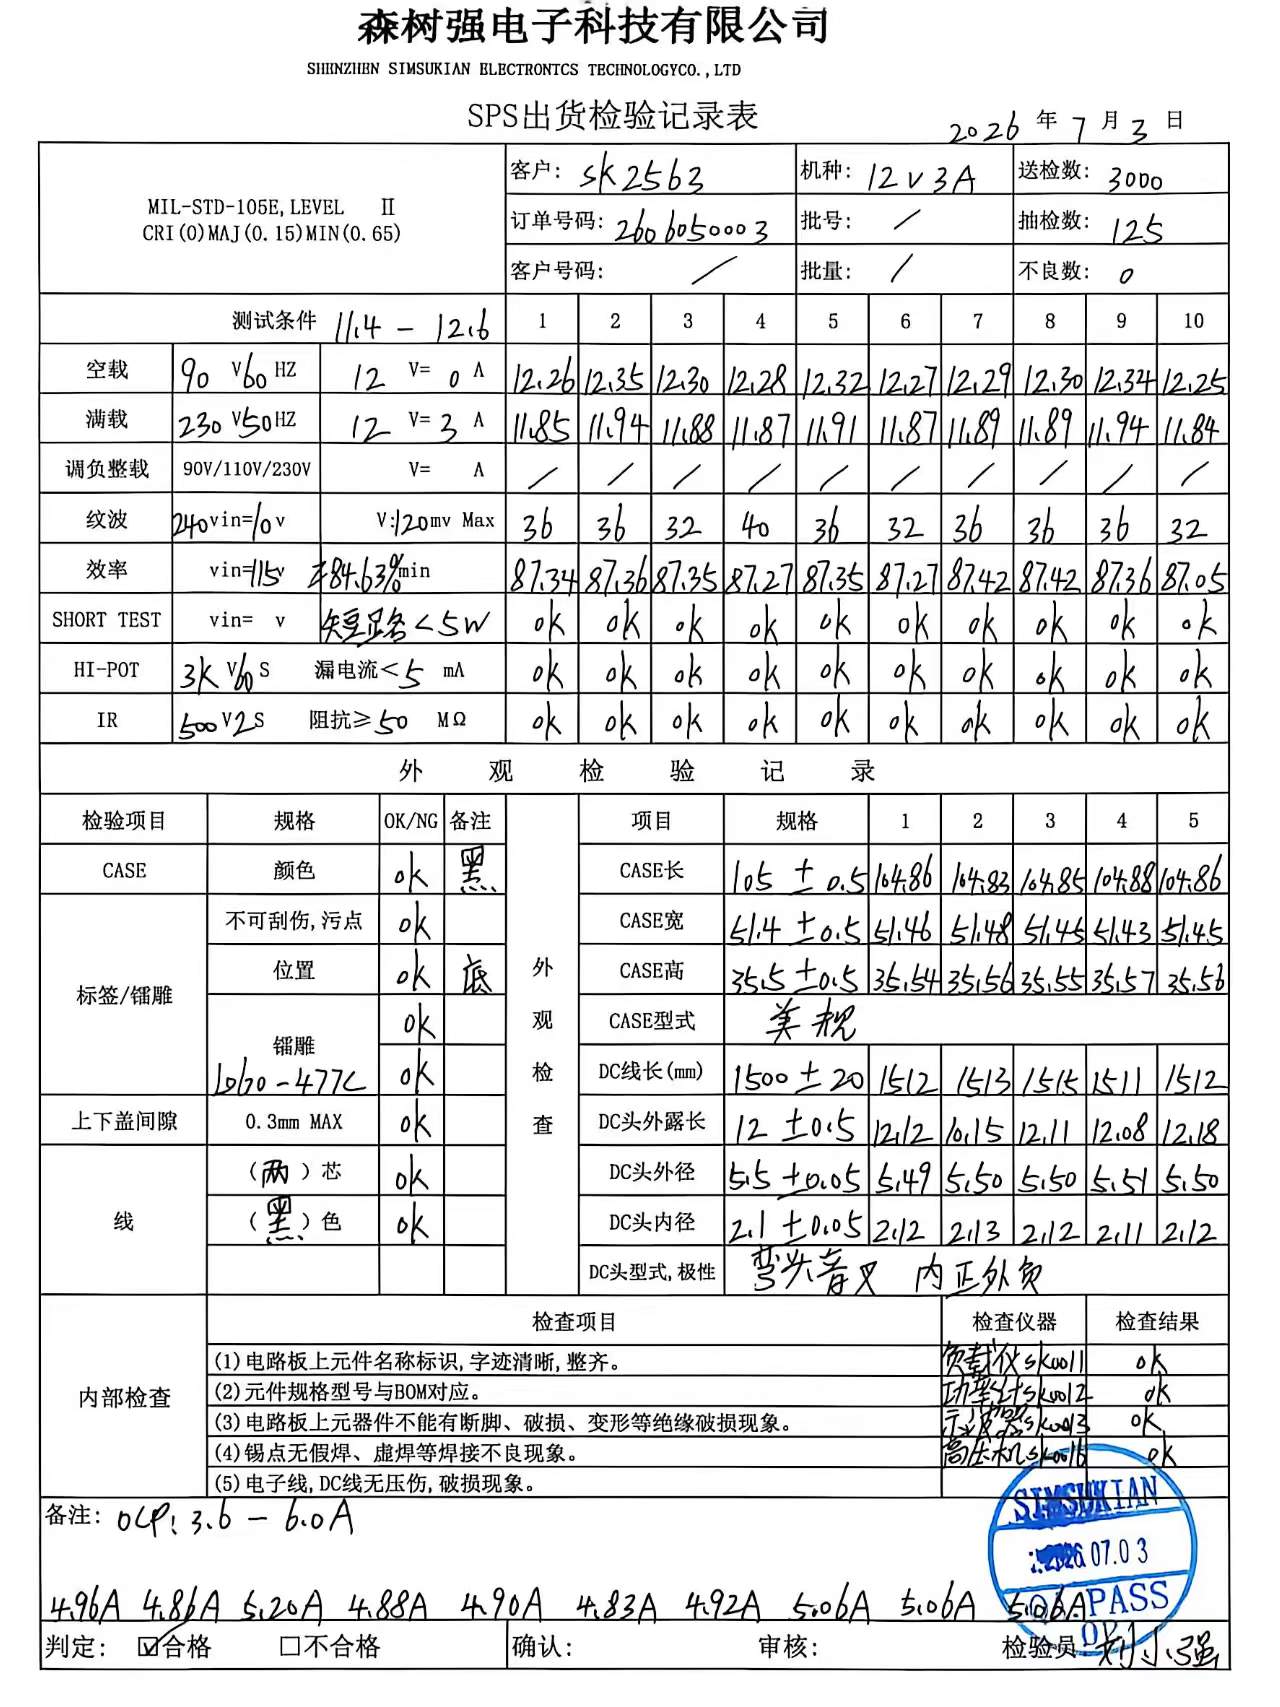 森树强电子科技有限公司
SHENZHEN SIMSUKIAN ELECTRONTCS TECHNOLOGYCO.,LTD
SPS出货检验记录表
2026 年 7 月 3 日
MIL-STD-105E,LEVEL Ⅱ
CRI(0)MAJ(0.15)MIN(0.65)
客户: SK2563 机种: 12V3A 送检数: 3000
订单号码: 2606050003 批号: / 抽检数: 125
客户号码: / 批量: / 不良数: 0
测试条件 11.4 - 12.6 1 2 3 4 5 6 7 8 9 10
空载 90 V 60 HZ 12 V= 0 A 12.26 12.35 12.30 12.28 12.32 12.27 12.29 12.30 12.34 12.25
满载 230 V 50 HZ 12 V= 3 A 11.85 11.94 11.88 11.87 11.91 11.87 11.89 11.89 11.94 11.84
调负整载 90V/110V/230V V= A / / / / / / / / / /
纹波 240 vin= 10 v V: 120 mv Max 36 36 32 40 36 32 36 36 36 32
效率 vin= 115 v ≥84.63% min 87.34 87.36 87.35 87.27 87.35 87.27 87.42 87.42 87.36 87.05
SHORT TEST vin= v 短路<5W ok ok ok ok ok ok ok ok ok ok
HI-POT 3K V 60 S 漏电流< 5 mA ok ok ok ok ok ok ok ok ok ok
IR 500 V 2 S 阻抗≥ 50 MΩ ok ok ok ok ok ok ok ok ok ok
外观检验记录
检验项目 规格 OK/NG 备注 外观检查 项目 规格 1 2 3 4 5
CASE 颜色 ok 黑 CASE长 105 ± 0.5 104.86 104.83 104.85 104.88 104.86
标签/镭雕 不可刮伤,污点 ok CASE宽 51.4 ±0.5 51.46 51.48 51.45 51.43 51.45
位置 ok 底 CASE高 35.5 ±0.5 35.54 35.56 35.55 35.57 35.56
镭雕 ok CASE型式 美规
Logo-477C ok DC线长(mm) 1500 ± 20 1512 1513 1515 1511 1512
上下盖间隙 0.3mm MAX ok DC头外露长 12 ±0.5 12.12 10.15 12.11 12.08 12.18
线 (两)芯 ok DC头外径 5.5 ±0.05 5.49 5.50 5.50 5.51 5.50
(黑)色 ok DC头内径 2.1 ±0.05 2.12 2.13 2.12 2.11 2.12
DC头型式,极性 弯头音叉 内正外负
内部检查 检查项目 检查仪器 检查结果
(1)电路板上元件名称标识,字迹清晰,整齐。 负载仪SK0011 ok
(2)元件规格型号与BOM对应。 功率计SK0012 ok
(3)电路板上元器件不能有断脚、破损、变形等绝缘破损现象。 示波器SK0013 ok
(4)锡点无假焊、虚焊等焊接不良现象。 高压机SK0016 ok
(5)电子线,DC线无压伤,破损现象。
备注: OCP: 3.6 - 6.0A
SIMSUKIAN
2026.07.03
4.96A 4.86A 5.20A 4.88A 4.90A 4.83A 4.92A 5.06A 5.06A 5.06A
PASS
判定: ☑合格 □不合格 确认: 审核: 检验员: 刘小强